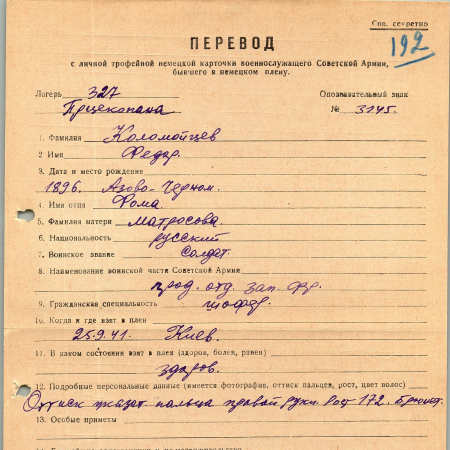 Сов. секретно
192
ПЕРЕВОД
с личной трофейной немецкой карточки военнослужащего Советской Армии,
бывшего в немецком плену.
Лагерь 327 Опознавательный знак
Пшекопана № 3145.
1. Фамилия Коломойцев
2 Имя Федор.
3. Дата и место рождения
1896. Азово-Черном.
4. Имя отца Фома.
5. Фамилия матери Матросова.
6. Национальность русский
7. Воинское звание Солдат.
8. Наименование воинской части Советской Армии
прод. отд. зап. фр.
9. Гражданская специальность шофер.
10. Когда и где взят в плен
25.9.41. Киев.
11. В каком состоянии взят в плен (здоров, болен, ранен)
здоров.
12. Подробные персональные данные (имеется фотография, оттиск пальцев, рост, цвет волос)
Оттиск указат. пальца правой руки. Рост 172. Брюнет.
13. Особые приметы